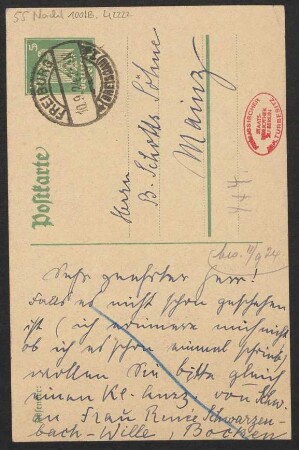 55 Nachl 100/B, 42222
5
FREIBURG
(BREISGAU)
Postkarte
Herrn
B. Schotts Söhne
Mainz
STAATS-
BIBLIOTHEK
ZU BERLIN
KULTURBESITZ
444.
11/9 24
Sehr geehrter Herr!
Falls es nicht schon geschehen
ist (ich erinnere mich nicht
ob ich es schon einmal schrieb)
wollen Sie bitte gleich
einen Kl. Ausz. von
an Frau Renée Schwarzen-
bach-Wille, Bocken
Absender: